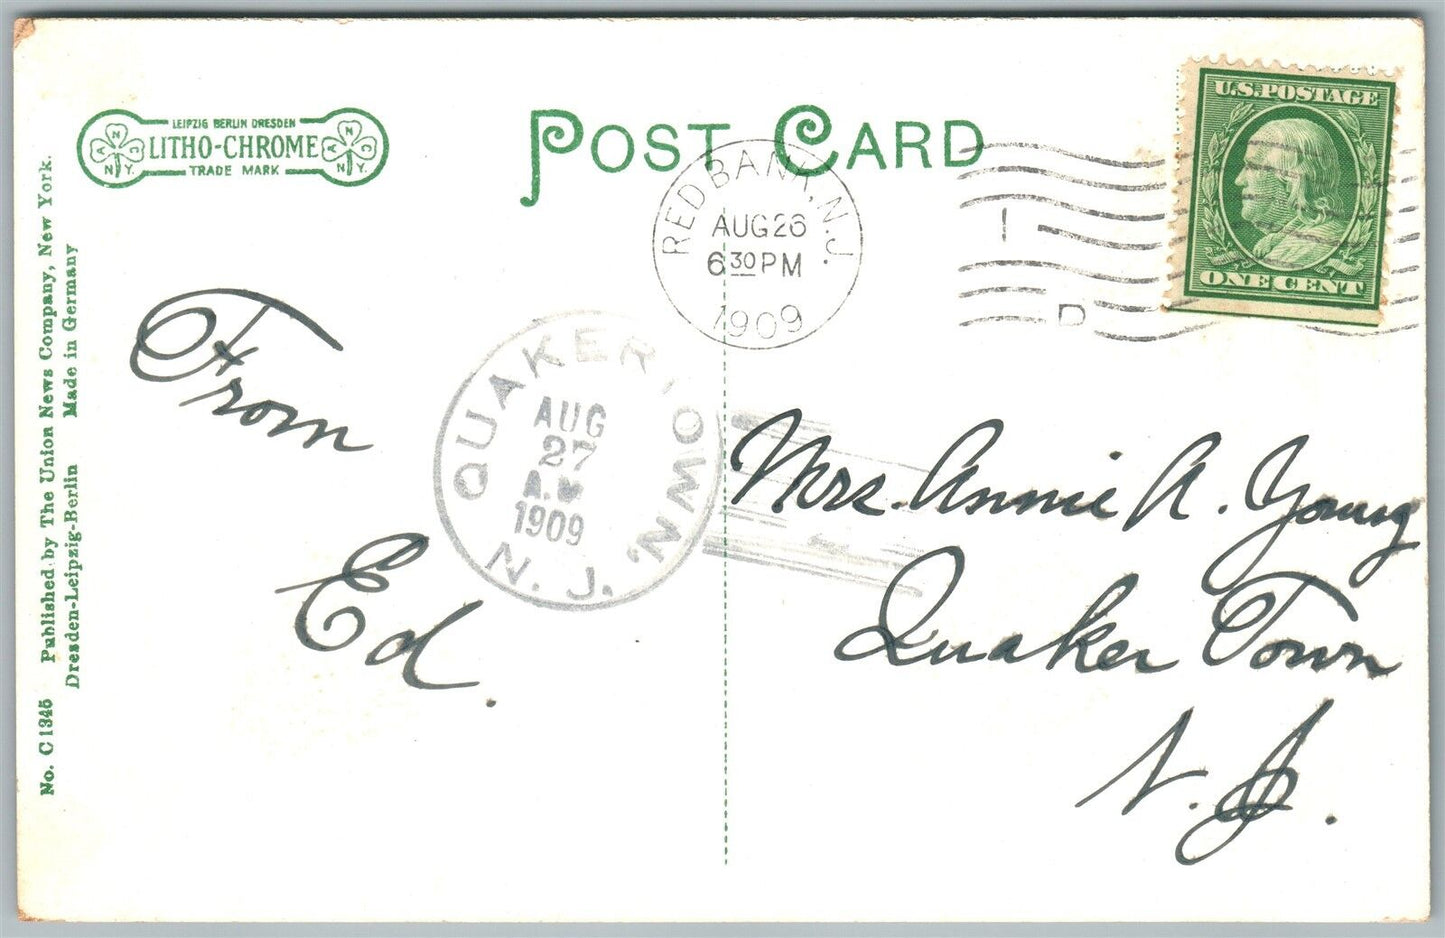 LEIPZIG BERLIN DRESDEN
LITHO-CHROME
TRADE MARK
A N C N.Y.
A N C N.Y.
POST CARD
U.S.POSTAGE
ONE CENT
RED BANK, N.J.
AUG 26
6 30 PM
1909
1
D
QUAKERTOWN, N.J.
AUG
27
A.M
1909
From
Ed.
Mrs. Annie A. Young
Quaker Town
N. J.
No. C 1345 Published by The Union News Company, New York.
Dresden-Leipzig-Berlin Made in Germany